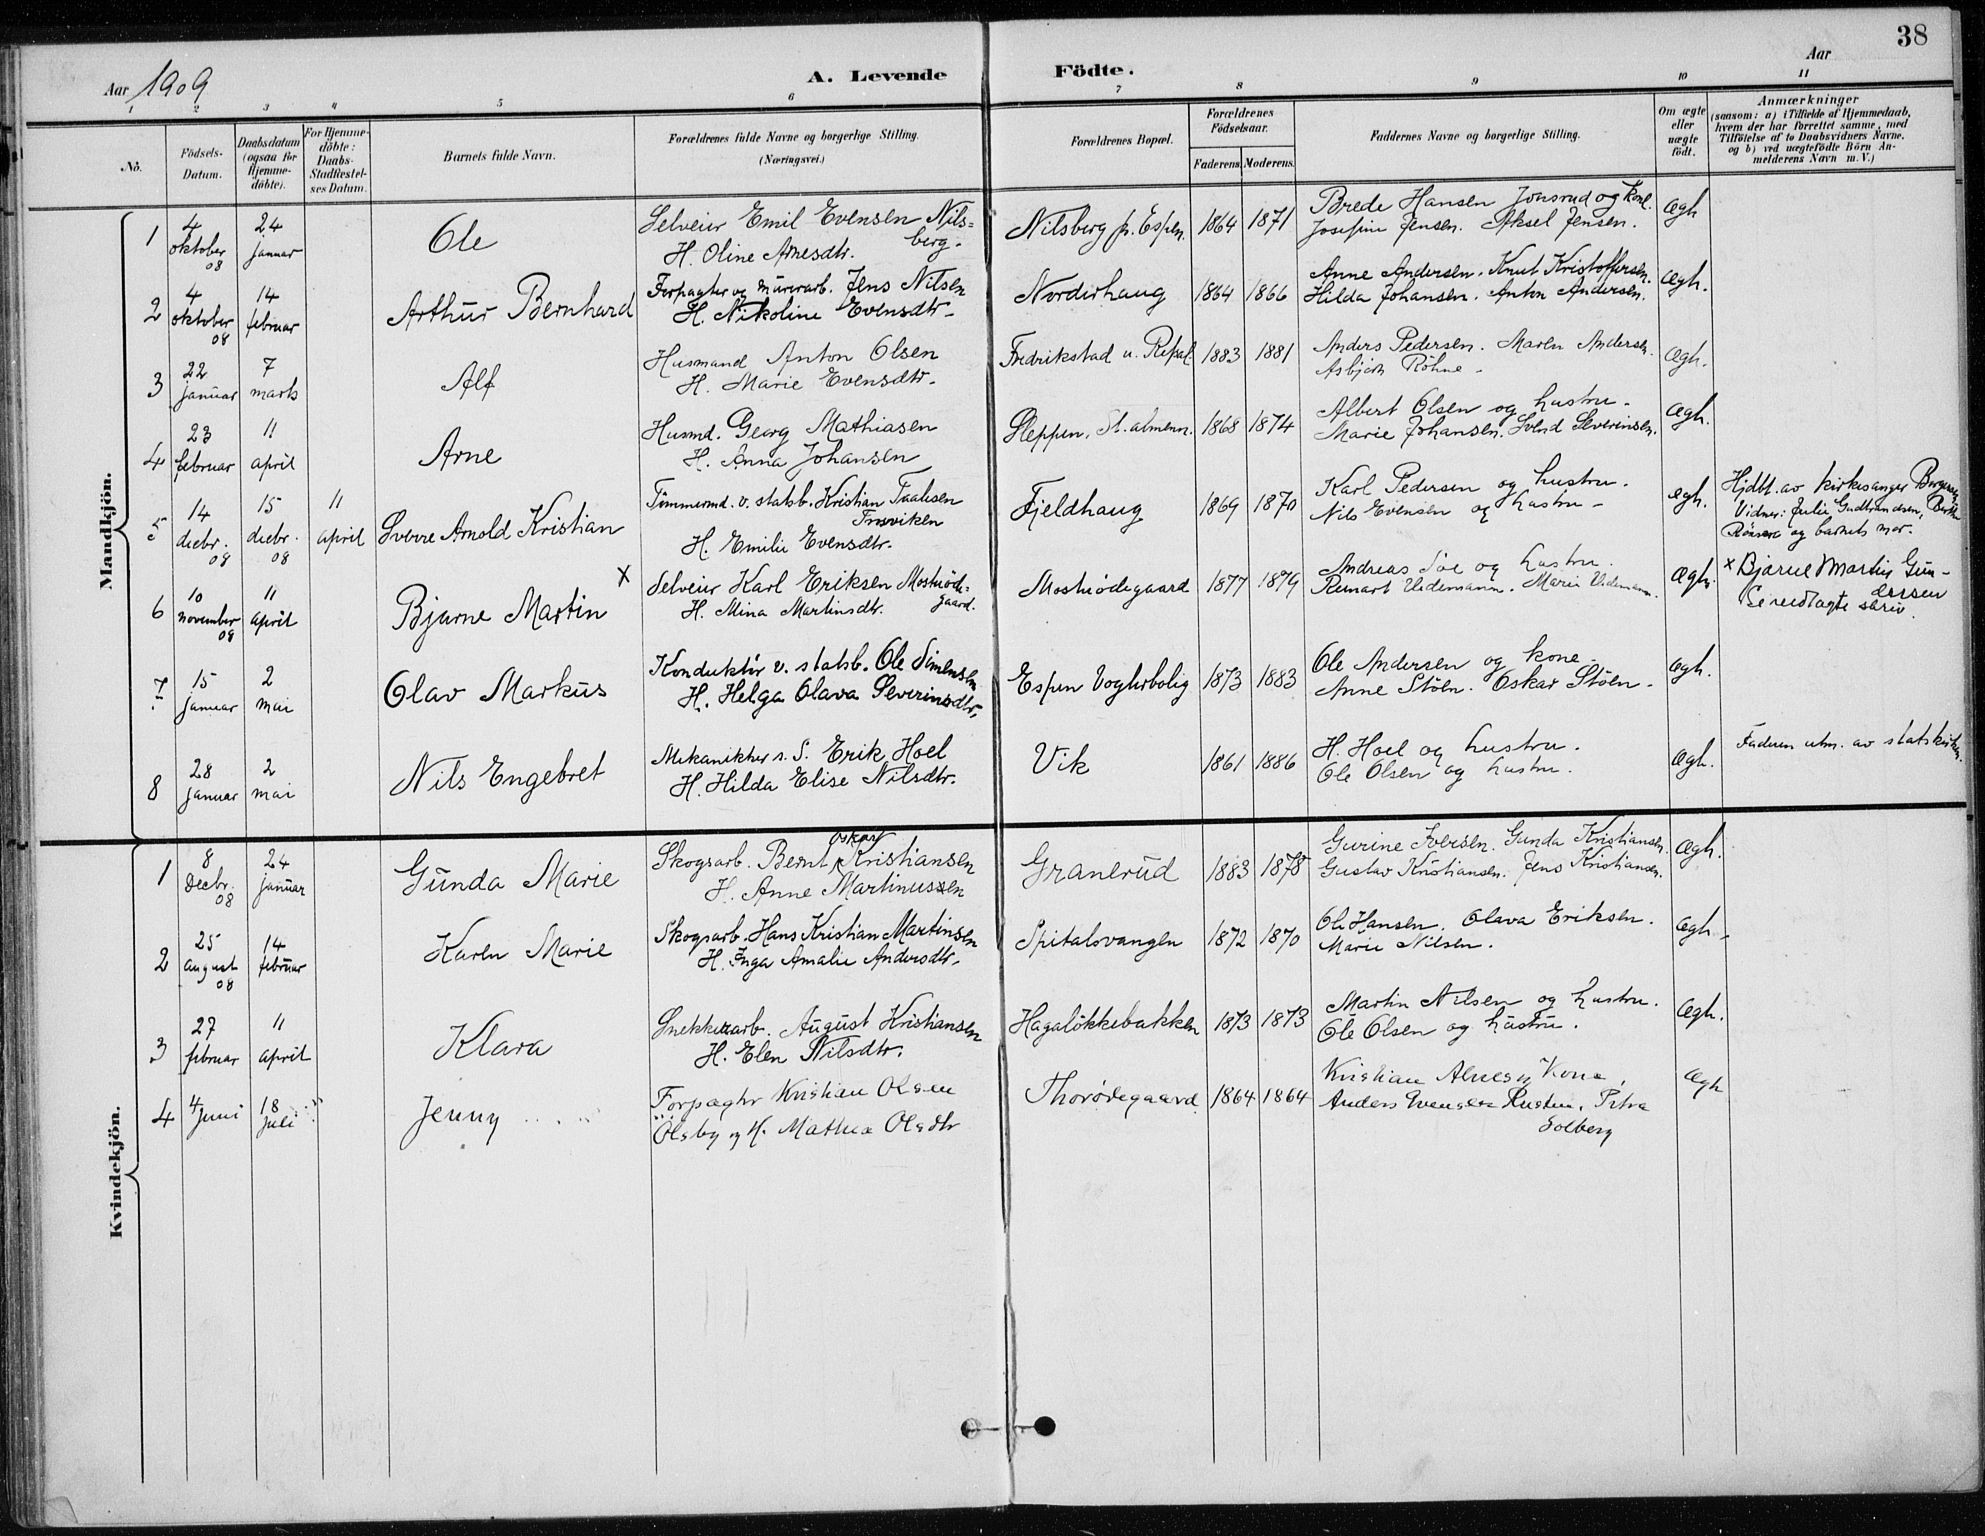 38
Aar 1909
A. Levende Födte.
Aar
1 2 3 4 5 6 7 8 9 10 11
No.
Födsels-Datum.
Daabsdatum (ogsaa for Hjemme-döbte).
For Hjemme-döbte: Daabs-Stadfæstel-ses Datum.
Barnets fulde Navn.
Forældrenes fulde Navne og borgerlige Stilling.
(Næringsvei.)
Forældrenes Bopæl.
Forældrenes Födselsaar.
Faderens. Moderens.
Faddernes Navne og borgerlige Stilling.
Om ægte eller uægte födt.
Anmærkninger
(saasom: a) i Tilfælde af Hjemmedaab,
hvem der har forrettet samme, med
Tilföielse af to Daabsvidners Navne.
og b) ved uægtefödte Börn An-
melderens Navn m. V.)
Mandkjön.
1 4 oktober 08 24 januar Ole
Selveier Emil Evensen Nils=
berg.
H. Oline Arnesdtr.
Nilsberg p. Espen. 1864 1871
Brede Hansen Jonsrud og kone.
Josefine Jensen. Aksel Jensen.
Ægh
2 4 oktober 08 14 februar Arthur Bernhard
Forpagter og murerarb. Jens Nilsen
H. Nikoline Evensdtr.
Norderhaug 1864 1866
Anne Andersen. Knut Kristoffersen.
Hilda Johansen. Anton Andersen.
Ægh.
3 22 januar 7 marts Alf
Husmand Anton Olsen
H. Marie Evensdtr.
Fredrikstad u. 1883 1881
Anders Pedersen. Maren Andersen.
Asbjørn Röhne.
Ægh.
4 23 februar 11 april Arne
Husmd. Georg Mathiasen
H. Anna Johansen
Sleppen, St. almenn. 1868 1874
Albert Olsen og hustru.
Marie Johansen. Svend Severinsen.
Ægh.
5 14 decbr. 08 15 decbr. 08 11 april Sverre Arnold Kristian
Tömmermd. v. statsb. Kristian
H. Emilie Evensdtr.
Fjeldhaug 1869 1870
Karl Pedersen og hustru.
Nils Evensen og hustru.
Ægh.
Hjdbt. av kirkesanger
Vidner: Julie Gudbrandsen,
og barnets mor.
6 10 november 08 11 april Bjarne Martin x
Selveier Karl Eriksen Mostuöde-
gaard.
H. Mina Martinsdtr.
Mostuödegaard 1877 1879
Andreas og hustru.
Ægh.
x Bjarne Martin Gun-
dersen
Se vedlagte skriv.
7 15 januar 2 mai Olav Markus
Konduktör v. statsb. Ole Simensen
H. Helga Olava Severinsdtr.
Espen Vogterbolig 1873 1883
Ole Andersen og kone.
Anne Stöen. Oskar Stöen.
Ægh.
8 28 januar 2 mai Nils Engebret
Mekanikker s. S. Erik Hoel
H. Hilda Elise Nilsdtr.
Vik 1861 1886
H. Hoel og hustru.
Ole Olsen og hustru.
Ægh.
Faderen utm. av statskirken.
Kvindekjön.
1 8 Decbr. 08 24 januar Gunda Marie
Oskar
Skogsarb. Bernt Kristiansen
H. Anne Martinussen
Granerud 1883 1878
Gurine Iversen. Gunda Kristiansen.
Gustav Kristiansen. Jens Kristiansen.
Ægh.
2 25 august 08 14 februar Karen Marie
Skogsarb. Hans Kristian Martinsen
H. Inga Amalie Andersdtr.
Spitalsvangen 1872 1870
Ole Hansen. Olava Eriksen.
Marie Nilsen.
Ægh.
3 27 februar 11 april Klara
Snekkerarb. August Kristiansen
H. Elen Nilsdtr.
Hagalökkebakken 1873 1873
Martin Nilsen og hustru.
Ole Olsen og hustru.
Ægh.
4 4 Juni 18 Juli Jenny
Forpagter Kristian Olsen
Olsby og H. Mathea Olsdtr
Thorödegaard 1864 1864
Kristian og Kone,
Anders Evensen Rusten. Petra
Solberg
Ægh